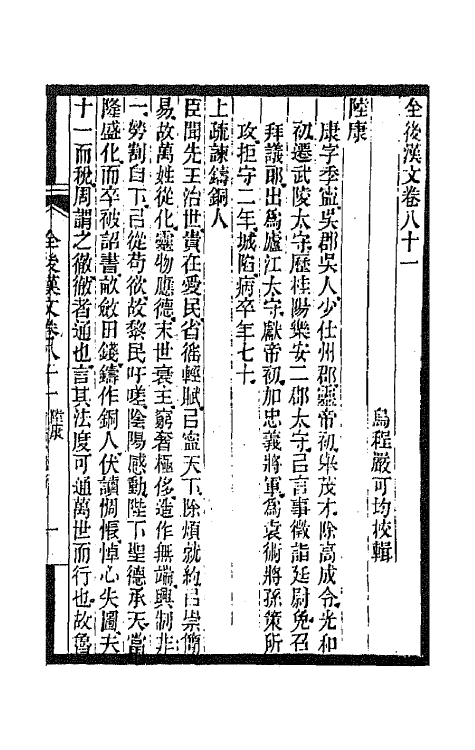 全後漢文卷八十一
烏程嚴可均校輯
陸康
康字季寧吳郡吳人少仕州郡靈帝初舉茂才除高成令光和
初遷武陵太守歷桂陽樂安二郡太守㠯言事徵詣廷尉免召
拜議郎出爲廬江太守獻帝初加忠義將軍爲袁術將孫策所
攻拒守二年城陷病卒年七十
上疏諫鑄銅人
臣聞先王治世貴在愛民省徭輕賦㠯寧天下除煩就約㠯崇簡
易故萬姓從化靈物應德末世衰主窮奢極侈造作無端興制非
一勞割自下㠯從苟欲故黎民吁嗟陰陽感動陛下聖德承天當
隆盛化而卒被詔書畝斂田錢鑄作銅人伏讀惆悵悼心失圖夫
十一而稅周謂之徹徹者通也言其法度可通萬世而行也故魯
全後漢文卷八十一 陸康 一